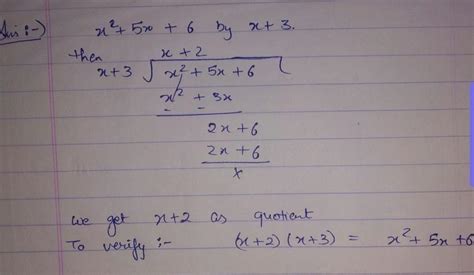 Ans :-) x² + 5x + 6 by x + 3.
then x + 2
x + 3 √ x² + 5x + 6
x² + 3x
- -
2x + 6
2x + 6
x
we get x+2 as quotient
To verify :- (x+2) (x+3) = x² + 5x + 6